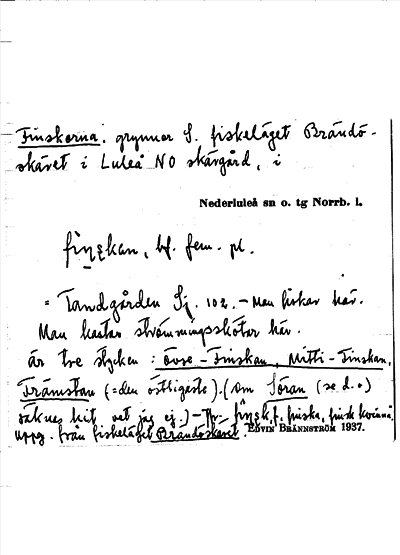 Finskorna, grynnor S. fiskeläget Brändö-
skäret i Luleå NO skärgård, i
Nederluleå sn o. tg Norrb. l.
bf. fem. pl.
= Sj. 102. – Man fiskar här.
Man kastar strömmingsskötar här.
är tre stycken: Övre-Finskan, Mitti-Finskan,
Främstan (= den östligaste). (Om Söran (se d. o)
räknes hit vet jag ej.) – f. finska, finsk kvinna.
Uppg. från fiskeläget Brändöskäret.
Edvin Brännström 1937.